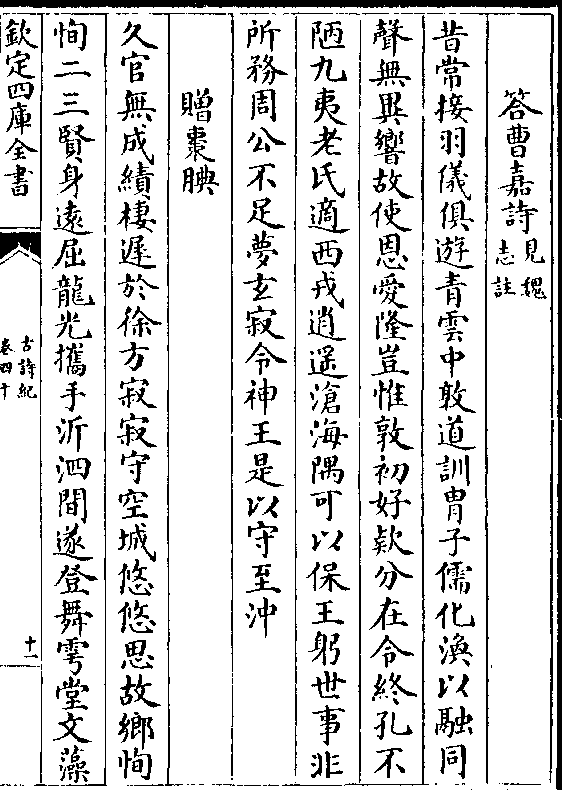 答曹嘉詩見魏志註
昔常接羽儀俱遊青雲中敦道訓胄子儒化渙以融同
聲無異響故使恩愛隆豈惟敦初好欵分在令終孔不
陋九夷老氏適西戎逍遥滄海隅可以保王躬世事非
所務周公不足夢玄寂令神王是以守至沖
贈棗腆
久官無成績棲遲於徐方寂寂守空城悠悠思故鄉恂
恂二三賢身逺屈龍光攜手沂泗間遂登舞雩堂文藻
欽定四庫全書
古詩紀
卷四十
十一